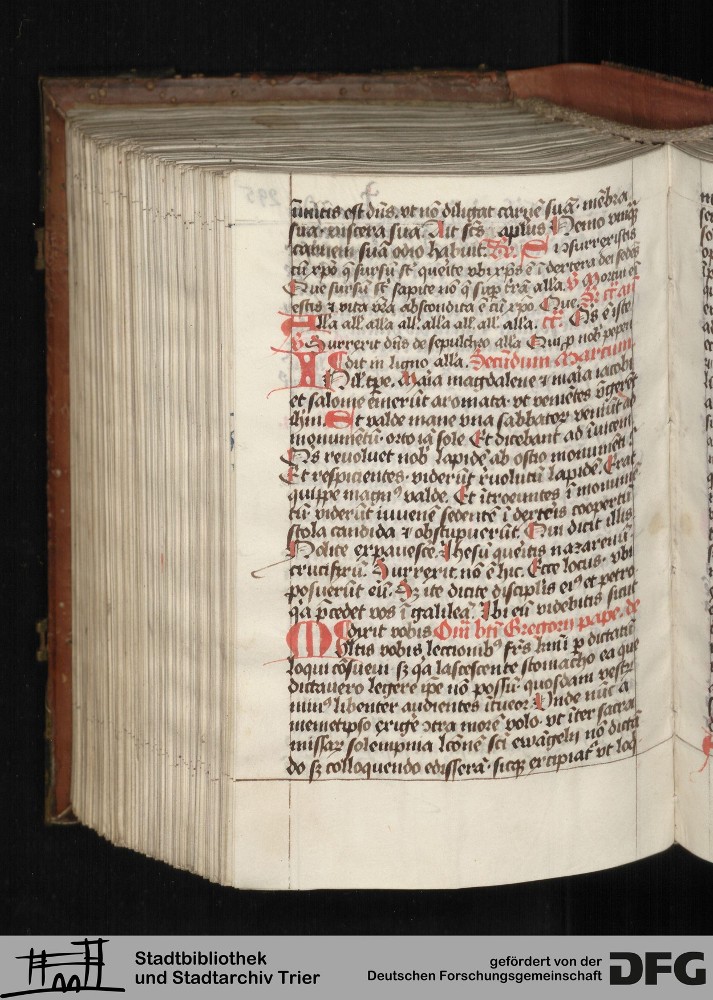 est dn̄s. vt nō diligat carnē suā. mēbra
sua. viscera sua. Ait scs̄ apl̄us Nemo
carnem suā odio habuit. Si ɔsurrexistis
cū xp̄o q̄ sursū st̄ querite vbi xp̄s ē ī dextera dei sedēs
Que sursū st̄ sapite nō q̄ sup̄ t̄rā alla. Mortui eī
estis ⁊ vita vr̄a abscondita ē cū xp̄o. Que
Alla all. alla all. alla all. all. alla.
Surrexit dn̄s de sepulchro alla Qui p̄ nob̄ pepen
dit in ligno alla. Secūdum Marcum
In il. tpe. Maria magdalene ⁊ maria iacobi
et salome emerūt aromata. vt veniētes vngerēt
ihm̄. Et valde mane vna sabbatoꝝ veniūt ad
monumētū. orto iā sole. Et dicebant ad īuicem
Quis reuoluet nob̄ lapidē ab ostio monumēti
Et respicientes. viderūt reuolutū lapidē. Erat
quippe magnꝰ valde. Et ītroeuntes ī monumē
tū. viderūt iuuenē sedentē ī dextris coopertū
stola candida ⁊ obstupuerūt. Qui dicit illis
Nolite expauescē. Ihesū queritis nazarenū
crucifixū. Surrexit. nō ē hic. Ecce locus. vbi
posuerūt eū. Sz ite dicite discip̄lis eiꝰ et petro
q̄a p̄cedet vos ī galileā. Ibi eū videbitis sicut
dixit vobis Om̄ bt̄i Gregorii pape. de
Multis vobis lectionibꝰ frs̄ kmī p̄ dictatū
loqui cōsueui sz q̄a lascescente stomacho ea que
dictauero legere ip̄e nō possū. quosdam vestrū
minꝰ libenter audientes ītueor. Vnde nūc a
memetip̄so exigē ɔtra morē volo. vt īter sacra
missaꝝ solempnia lc̄onē sc̄i ewāgelij nō dictā
do sz colloquendo edisserā. sicqꝫ excipiat᷑ vt loq̄
Stadtbibliothek
und Stadtarchiv Trier
gefördert von der
Deutschen Forschungsgemeinschaft
DFG